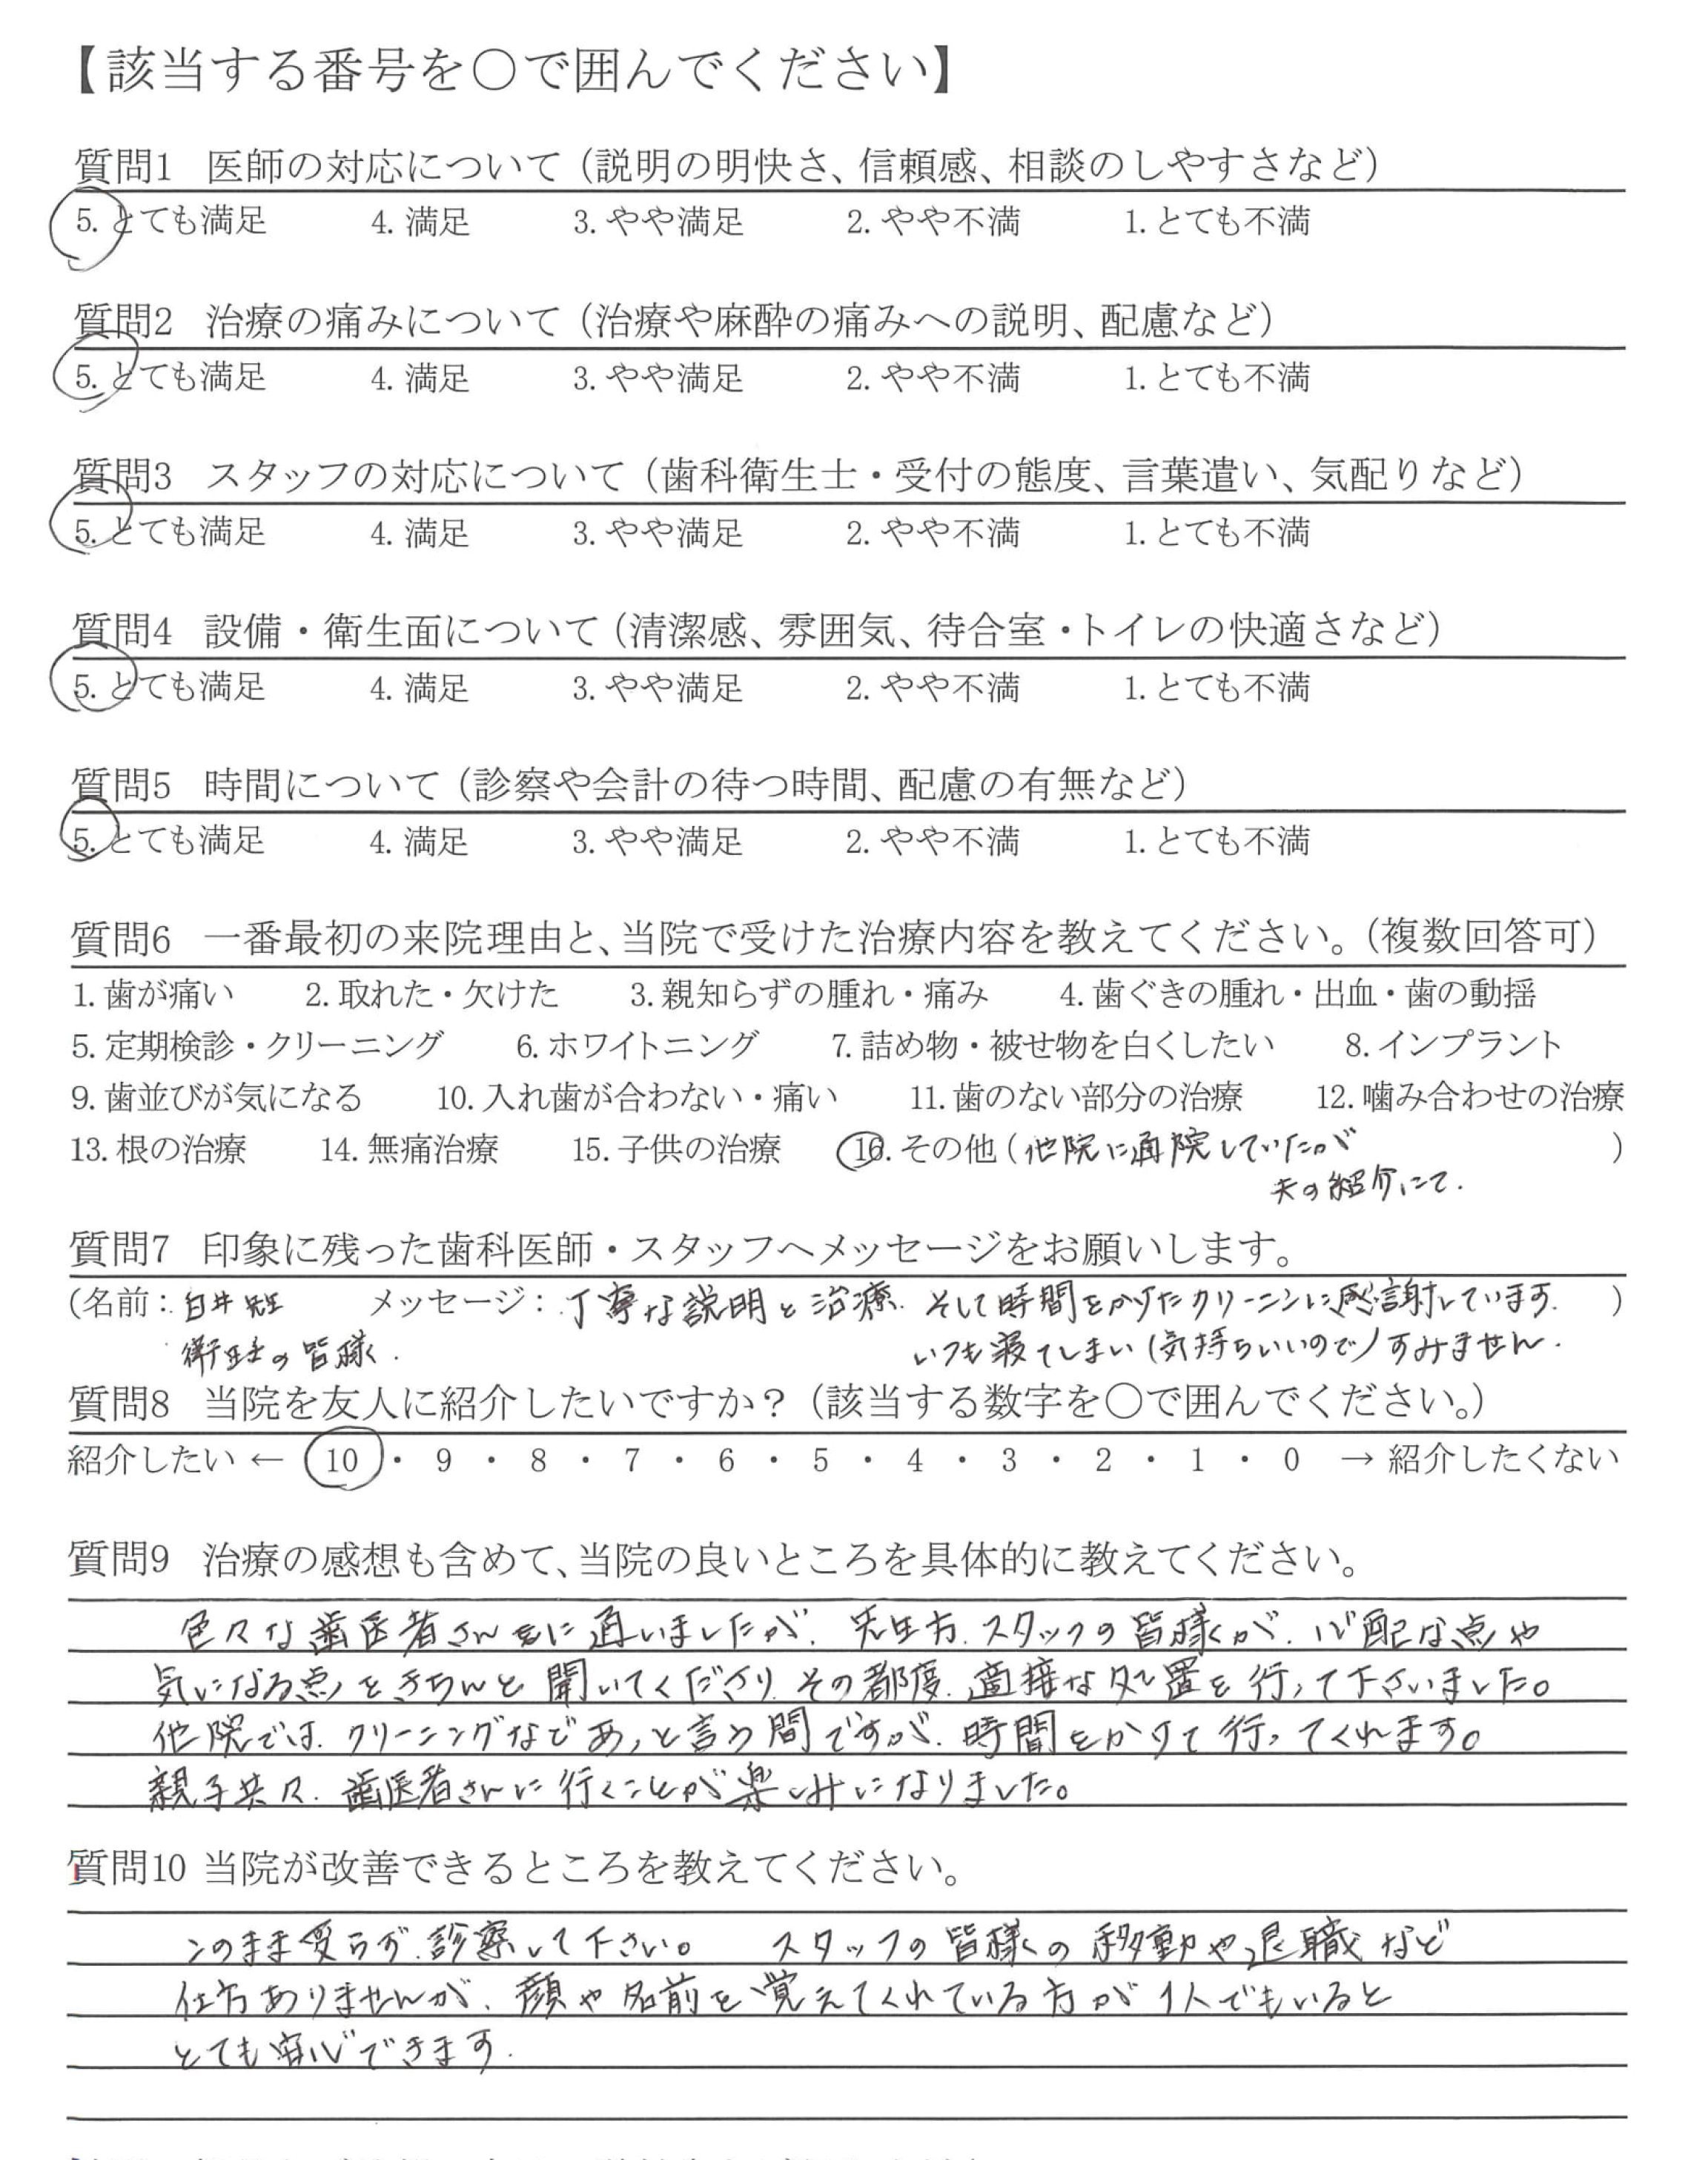 【該当する番号を〇で囲んでください】
質問1 医師の対応について（説明の明快さ、信頼感、相談のしやすさなど）
5. とても満足 4. 満足 3. やや満足 2. やや不満 1. とても不満
質問2 治療の痛みについて（治療や麻酔の痛みへの説明、配慮など）
5. とても満足 4. 満足 3. やや満足 2. やや不満 1. とても不満
質問3 スタッフの対応について（歯科衛生士・受付の態度、言葉遣い、気配りなど）
5. とても満足 4. 満足 3. やや満足 2. やや不満 1. とても不満
質問4 設備・衛生面について（清潔感、雰囲気、待合室・トイレの快適さなど）
5. とても満足 4. 満足 3. やや満足 2. やや不満 1. とても不満
質問5 時間について（診察や会計の待つ時間、配慮の有無など）
5. とても満足 4. 満足 3. やや満足 2. やや不満 1. とても不満
質問6 一番最初の来院理由と、当院で受けた治療内容を教えてください。（複数回答可）
1. 歯が痛い 2. 取れた・欠けた 3. 親知らずの腫れ・痛み 4. 歯ぐきの腫れ・出血・歯の動揺
5. 定期検診・クリーニング 6. ホワイトニング 7. 詰め物・被せ物を白くしたい 8. インプラント
9. 歯並びが気になる 10. 入れ歯が合わない・痛い 11. 歯のない部分の治療 12. 噛み合わせの治療
13. 根の治療 14. 無痛治療 15. 子供の治療 16. その他（他院に通院していたが ）
夫の紹介にて.
質問7 印象に残った歯科医師・スタッフへメッセージをお願いします。
（名前：白井先生 メッセージ：丁寧な説明と治療. そして時間をかけたクリーニングに感謝しています. ）
衛生士の皆様. いつも寝てしまい（気持ちいいので）すみません.
質問8 当院を友人に紹介したいですか？（該当する数字を〇で囲んでください。）
紹介したい ← 10 ・ 9 ・ 8 ・ 7 ・ 6 ・ 5 ・ 4 ・ 3 ・ 2 ・ 1 ・ 0 → 紹介したくない
質問9 治療の感想も含めて、当院の良いところを具体的に教えてください。
色々な歯医者さんに通いましたが、先生方、スタッフの皆様が、心配な点や
気になる点をきちんと聞いてくださり、その都度、適接な処置を行って下さいました。
他院では、クリーニングなどあっと言う間ですが、時間をかけて行ってくれます。
親子共々、歯医者さんに行くことが楽しみになりました。
質問10 当院が改善できるところを教えてください。
このまま変らず、診察して下さい。 スタッフの皆様の移動や退職など
仕方ありませんが、顔や名前を覚えてくれている方が1人でもいると
とても安心できます.